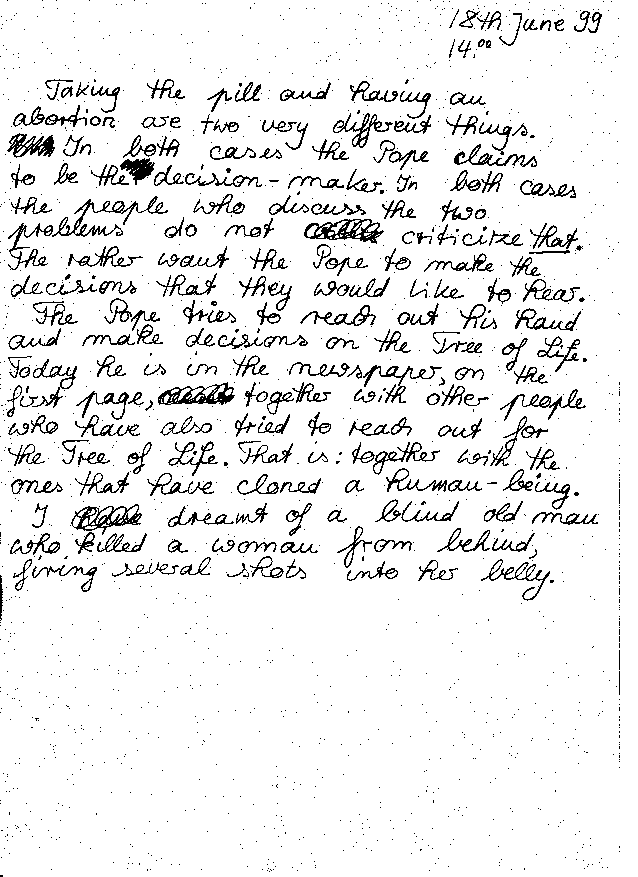 18th June 99
14.00
Taking the pill and having an
abortion are two very different things.
In both cases the Pope claims
to be the decision-maker. In both cases
the people who discuss the two
problems do not criticitze that.
The rather want the Pope to make the
decisions that they would like to hear.
The Pope tries to reach out his hand
and make decisions on the Tree of Life.
Today he is in the newspaper, on the
first page, together with other people
who have also tried to reach out for
the Tree of Life. That is: together with the
ones that have cloned a human-being.
I dreamt of a blind old man
who killed a woman from behind,
firing several shots into her belly.